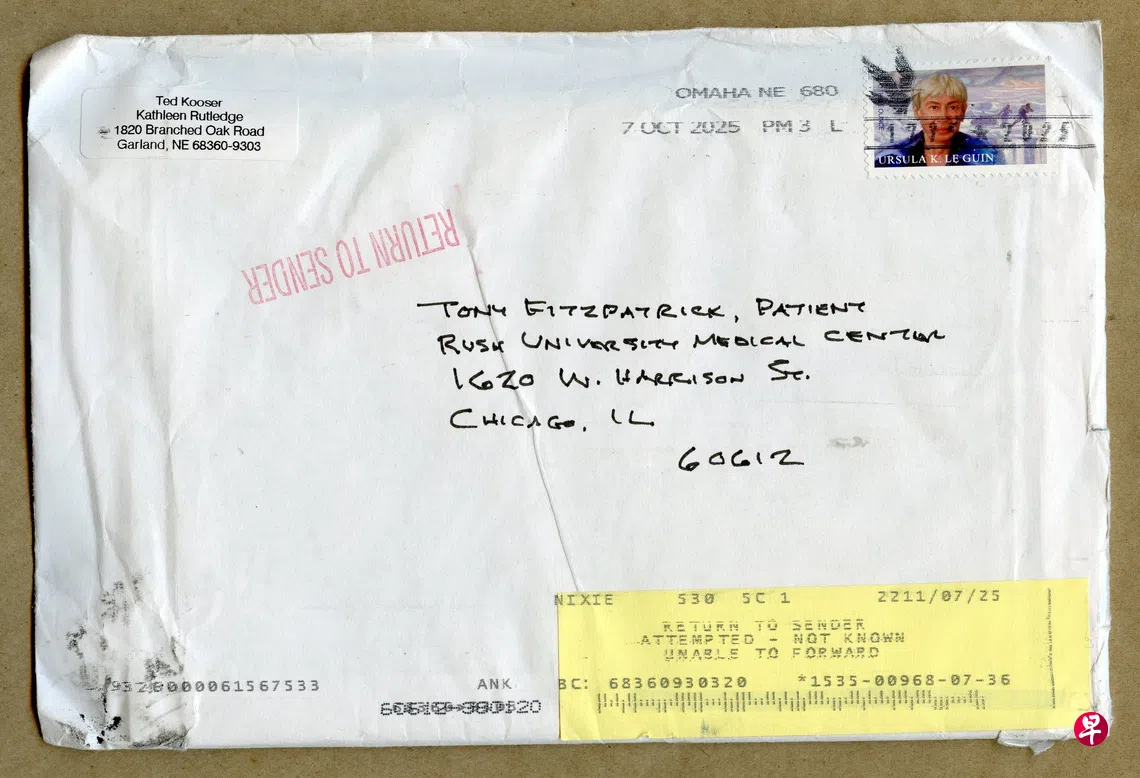 Ted Kooser
Kathleen Rutledge
1820 Branched Oak Road
Garland, NE 68360-9303
OMAHA NE 680
7 OCT 2025 PM 3 L
2025
URSULA K. LE GUIN
RETURN TO SENDER
TONY FITZPATRICK, PATIENT
RUSH UNIVERSITY MEDICAL CENTER
1620 W. HARRISON ST.
CHICAGO, IL
60612
NIXIE 530 5C 1 2211/07/25
RETURN TO SENDER
ATTEMPTED - NOT KNOWN
UNABLE TO FORWARD
ANK
BC: 68360930320 *1535-00968-07-36
早